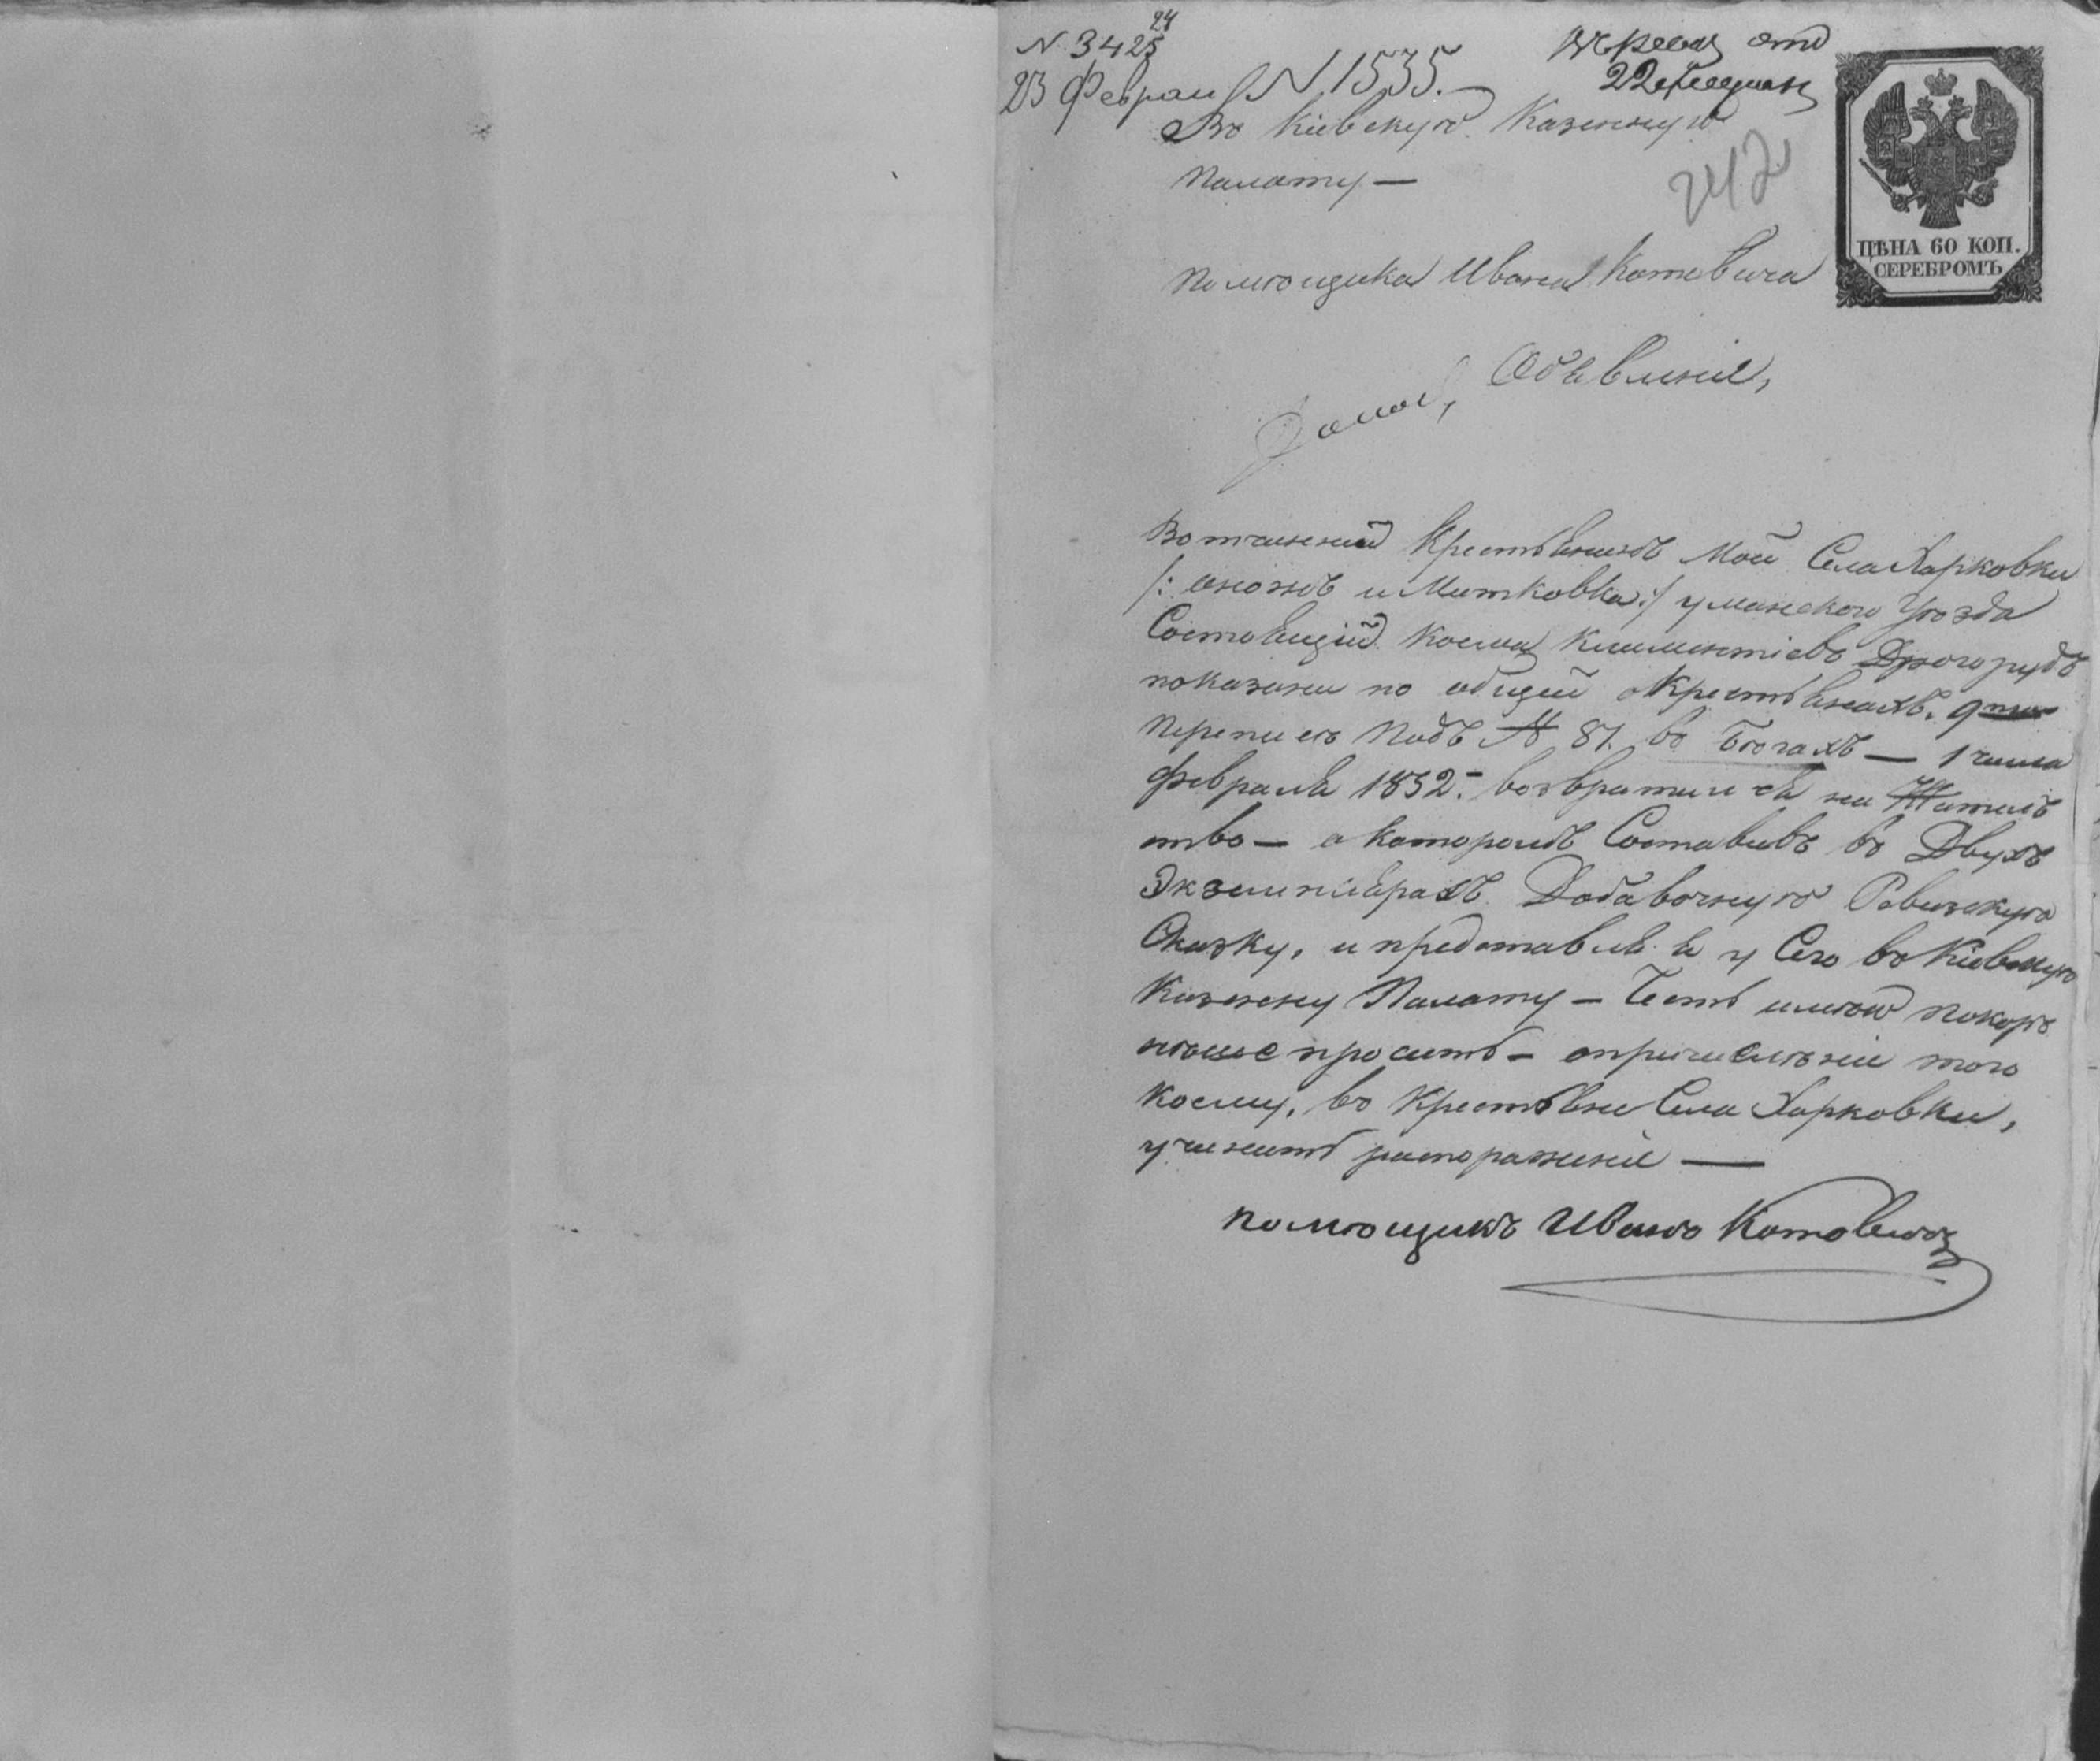 24
N 3425
23 Феврал N 1535.
отд
22
Во Кіевскую Казенную
Палату —
242
ЦѢНА 60 КОП.
СЕРЕБРОМЪ
Помющика Ивана Котовича
Обявленіе,
Вотчинний Крестьянинъ мой Села Харковки
/: оножъ и Митковка :/ уманского Уюзда
Состоящій Косма Климентіевъ
показани по общей о Крестьянахъ. 9
переписю Подъ N 81. во Бюгахъ — 1 числа
февраля 1852. возвратился на Жителъ
тво — а которомъ Составивъ во Двухъ
Экземплярахъ Добавочную Ревизкую
Сказку, и представляя у Сего во Кіевскую
Казенну Палату — Честь имюю покоръ
нюше просить — опричислюніи того
Космы, во Крестьяни Села Харковки,
учинить распоражиніе —
помющикъ Иванъ Котовичъ